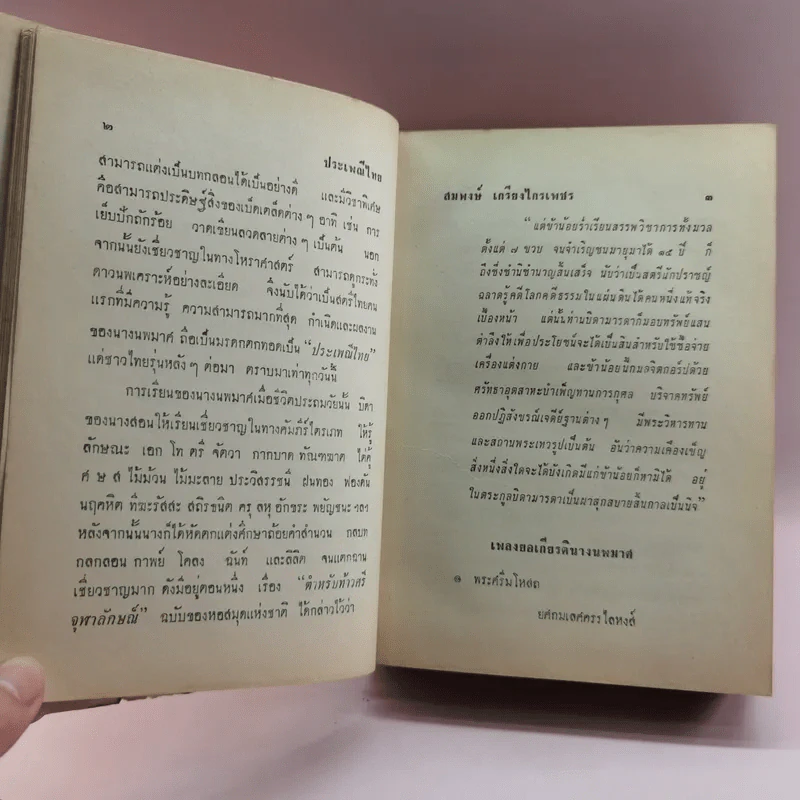 ๒
ประเพณีไทย
สามารถแต่งเป็นบทกลอนได้เป็นอย่างดี และมีวิชาพิเศษ
คือสามารถประดิษฐ์สิ่งของเบ็ดเตล็ดต่าง ๆ อาทิ เช่น การ
เย็บปักถักร้อย วาดเขียนลวดลายต่าง ๆ เป็นต้น นอก
จากนั้นยังเชี่ยวชาญในทางโหราศาสตร์ สามารถดูกระทั่ง
ดาวนพเคราะห์อย่างละเอียด จึงนับได้ว่าเป็นสตรีไทยคน
แรกที่มีความรู้ ความสามารถมากที่สุด กำเนิดและผลงาน
ของนางนพมาศ ถือเป็นมรดกตกทอดเป็น "ประเพณีไทย"
แต่ชาวไทยรุ่นหลัง ๆ ต่อมา ตราบมาเท่าทุกวันนี้
การเรียนของนางนพมาศเมื่อชีวิตประถมวัยนั้น บิดา
ของนางสอนให้เรียนเชี่ยวชาญในทางคัมภีร์ไตรเภท ให้รู้
ลักษณะ เอก โท ตรี จัตวา กากบาด ทัณฑฆาต ไต่คู้
ศ ษ ส ไม้ม้วน ไม้มะลาย ประวิสรรชนี ฝนทอง ฟองดัน
นฤคหิต ทีฆะรัสสะ สถิรชนิต ครุ ลหุ อักขระ พยัญชนะ ฯลฯ
หลังจากนั้นนางก็ได้หัดตกแต่งศึกษาถ้อยคำสำนวน กลบท
กลกลอน กาพย์ โคลง ฉันท์ และลิลิต จนแตกฉาน
เชี่ยวชาญมาก ดังมีอยู่ตอนหนึ่ง เรื่อง "ตำหรับท้าวศรี
จุฬาลักษณ์" ฉบับของหอสมุดแห่งชาติ ได้กล่าวไว้ว่า
สมพงษ์ เกรียงไกรเพชร
๓
"แต่ข้าน้อยร่ำเรียนสรรพวิชาการทั้งมวล
ตั้งแต่ ๗ ขวบ จนจำเริญชนมายุมาได้ ๑๕ ปี ก็
ถึงซึ่งชำนิชำนาญสิ้นเสร็จ นับว่าเป็นสตรีนักปราชญ์
ฉลาดรู้คดีโลกคดีธรรมในแผ่นดินได้คนหนึ่งแท้จริง
เบื้องหน้า แต่นั้นท่านบิดามารดาก็มอบทรัพย์แสน
ตำลึงให้เพื่อประโยชน์จะได้เป็นสินสำหรับใช้ซื้อจ่าย
เครื่องแต่งกาย และข้าน้อยนี้กมลจิตถอร์ปด้วย
ศรัทธาอุตสาหะบำเพ็ญทานการกุศล บริจาคทรัพย์
ออกปฏิสังขรณ์เจดีย์ฐานต่าง ๆ มีพระวิหารทาน
และสถานพระเทวรูปเป็นต้น อันว่าความเคืองเข็ญ
สิ่งหนึ่งสิ่งใดจะได้บังเกิดมีแก่ข้าน้อยก็หามิได้ อยู่
ในตระกูลบิดามารดาเป็นผาสุกสบายสิ้นกาลเป็นนิจ"
เพลงยอเกียรตินางนพมาศ
๑ พระศรีมโหสถ
ยศกมเลศครรไลหงส์